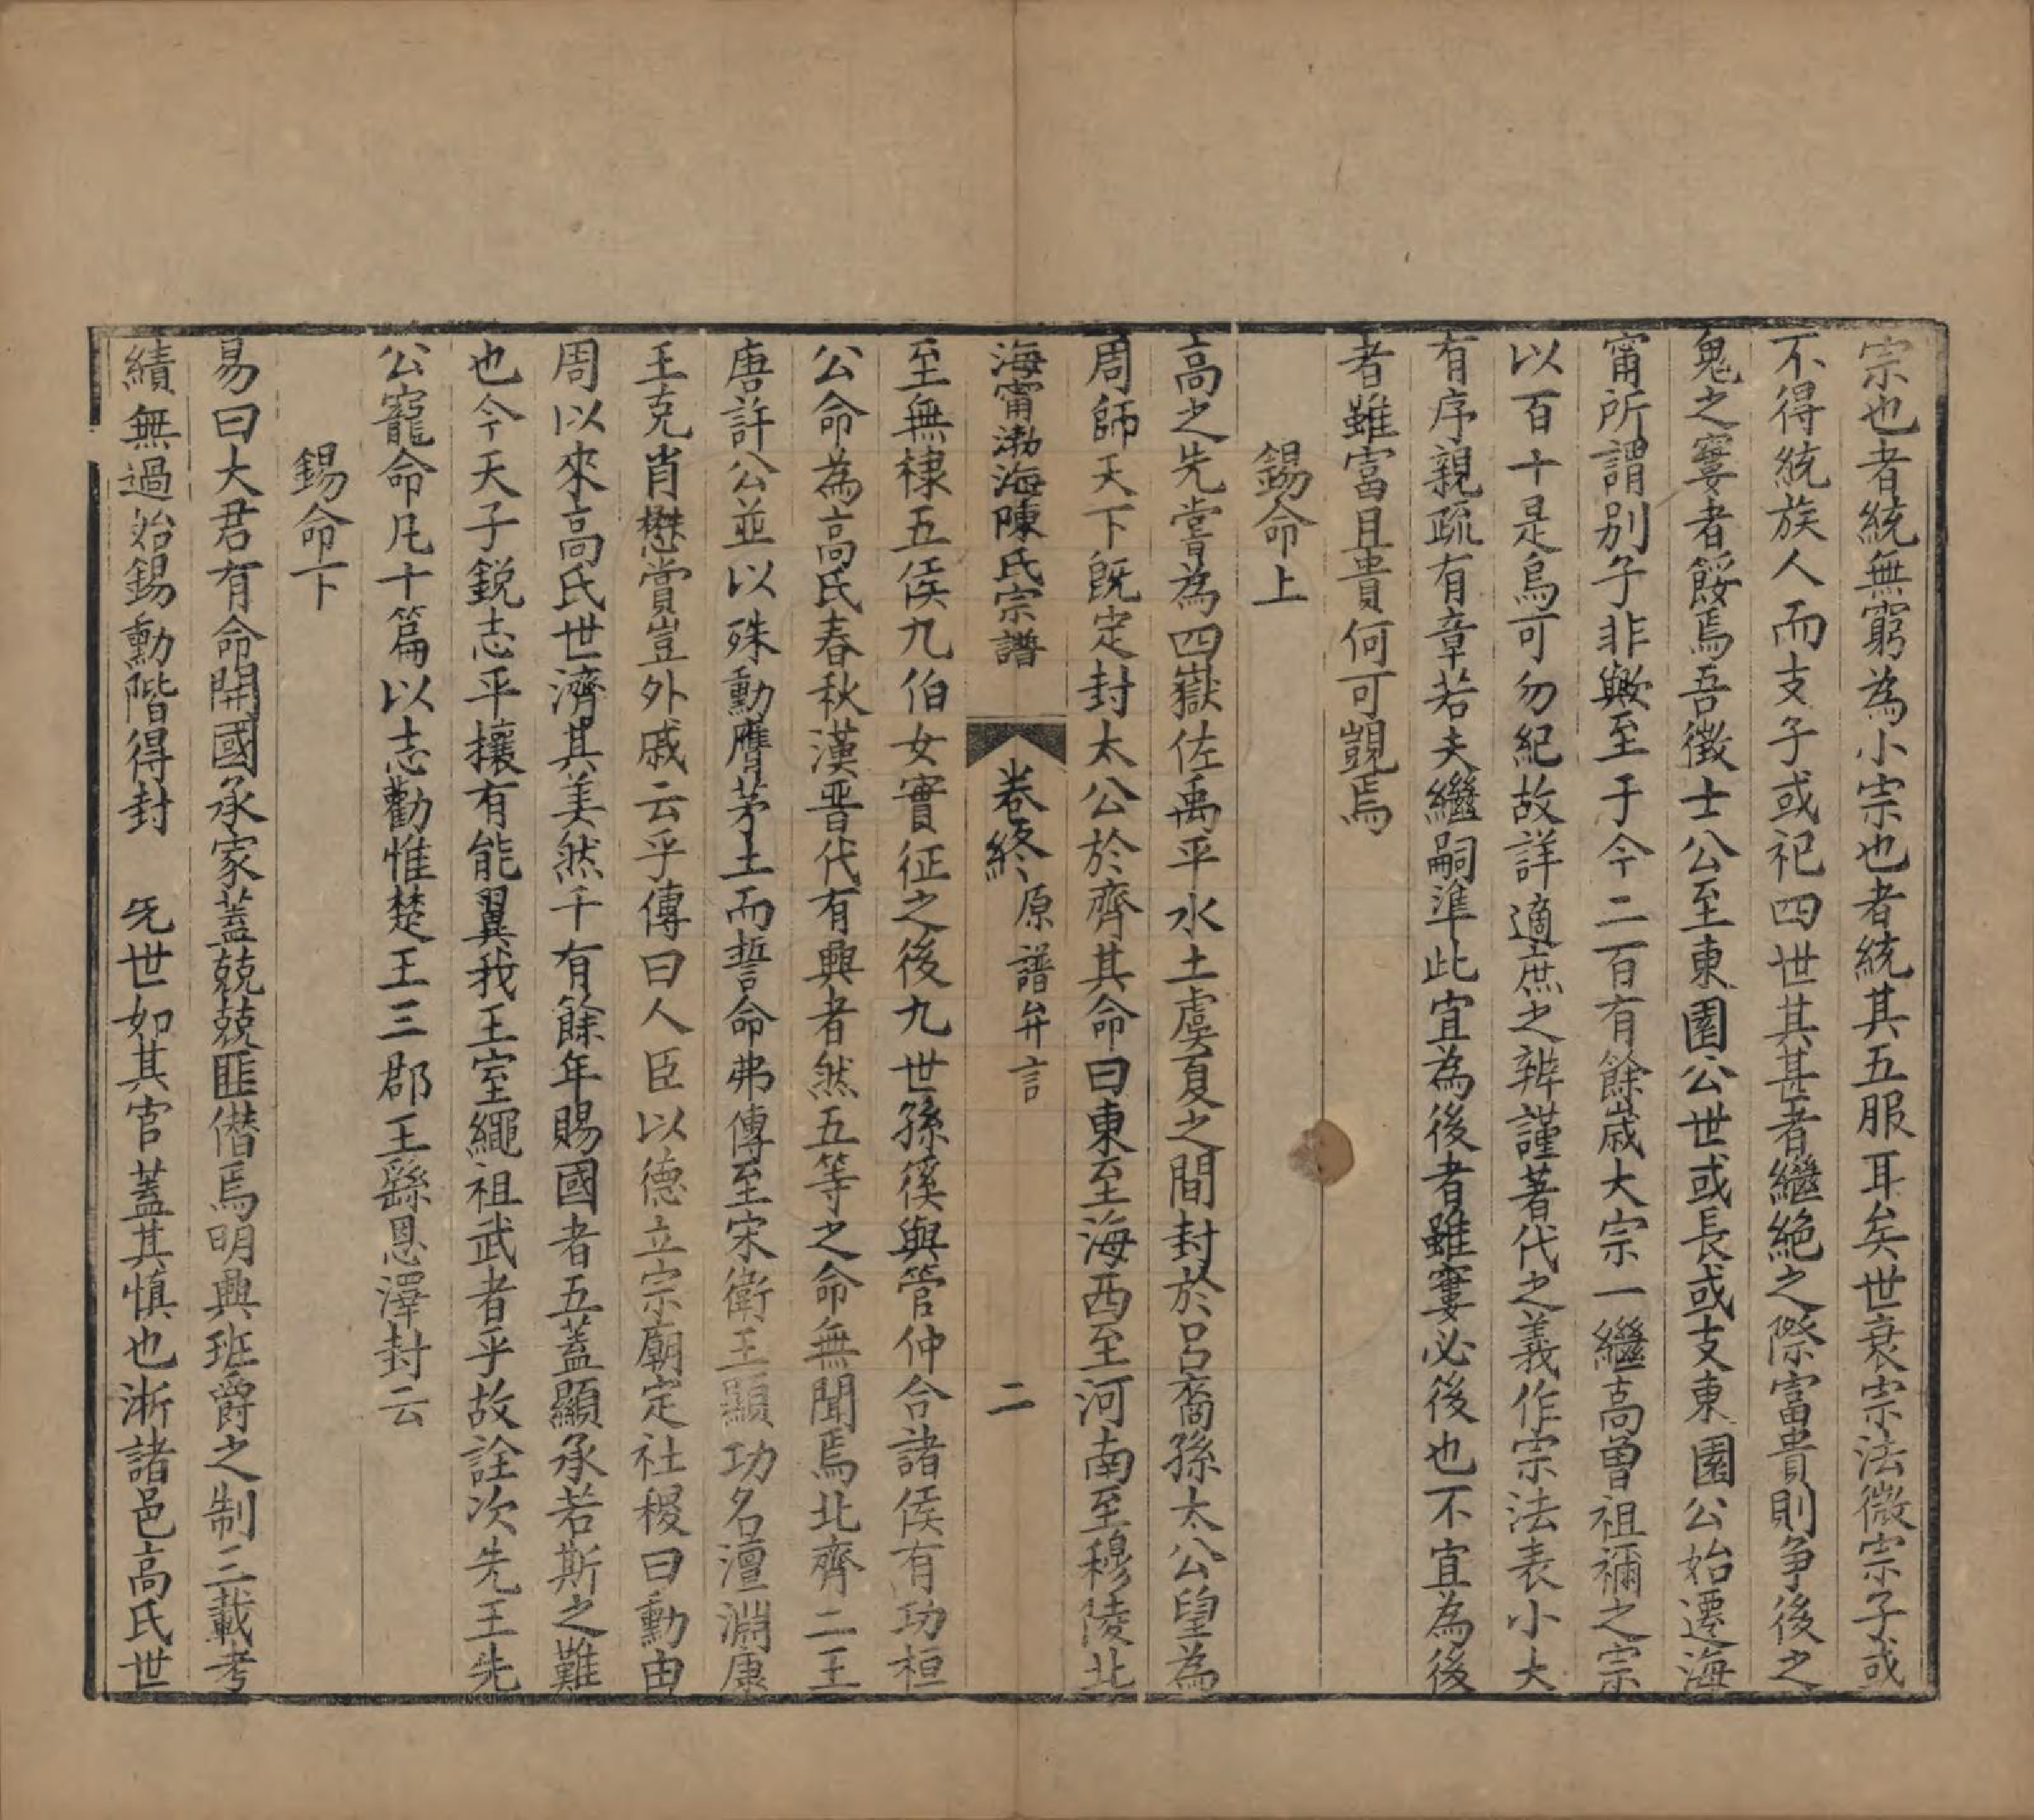 宗也者統無窮為小宗也者統其五服耳矣世衰宗法微宗子或
不得統族人而支子或祀四世其甚者繼絶之際富貴則争後之
鬼之寠者餒焉吾徴士公至東園公世或長或支東園公始遷海
甯所謂别子非歟至于今二百有餘嵗大宗一繼高曽祖禰之宗
以百十是烏可勿紀故詳適庶之辨謹著代之義作宗法表小大
有序親疏有章若夫繼嗣準此宜為後者雖寠必後也不宜為後
者雖富且貴何可覬焉
錫命上
高之先嘗為四嶽佐禹平水土虞夏之間封於吕裔孫太公望為
周師天下既定封太公於齊其命曰東至海西至河南至穆陵北
海甯渤海陳氏宗譜 卷終 原譜弁言 二
至無棣五侯九伯女實征之後九世孫傒與管仲合諸侯有功桓
公命為高氏春秋漢晋代有興者然五等之命無聞焉北齊二王
唐許公並以殊勳膺茅土而誓命弗傳至宋衛王顯功名澶淵康
王克肖懋賞豈外戚云乎傳曰人臣以德立宗廟定社稷曰勳由
周以來高氏世濟其美然千有餘年賜國者五蓋顯承若斯之難
也今天子鋭志平攘有能翼我王室繩祖武者乎故詮次先王先
公寵命凡十篇以志勸惟楚王三郡王繇恩澤封云
錫命下
易曰大君有命開國承家蓋兢兢匪僭焉明興班爵之制三載考
績無過始錫勳階得封 先世如其官蓋其慎也淅諸邑高氏世